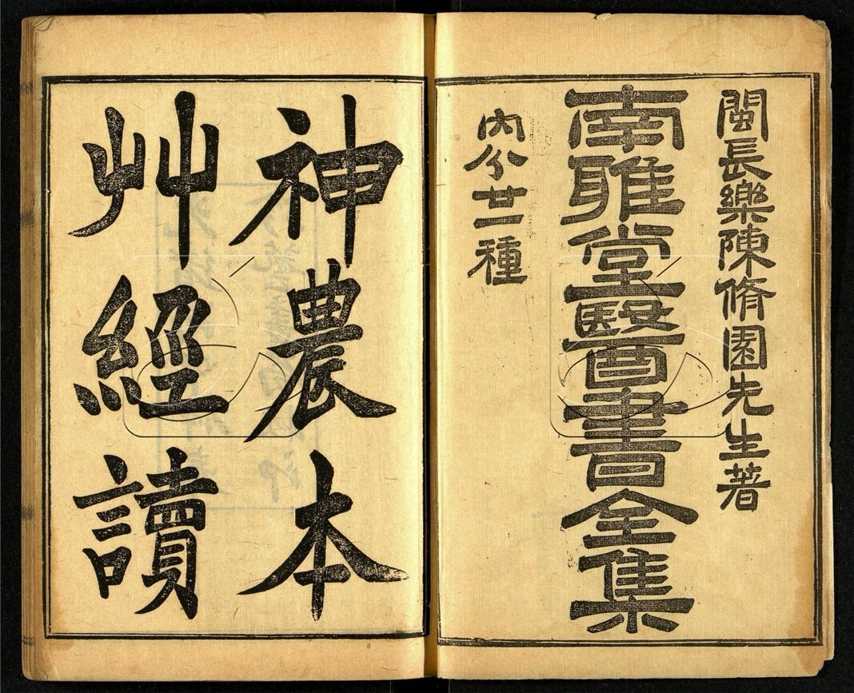 閩長樂陳脩園先生著
南雅堂醫書全集
內分廿一種
神農本
艸經讀